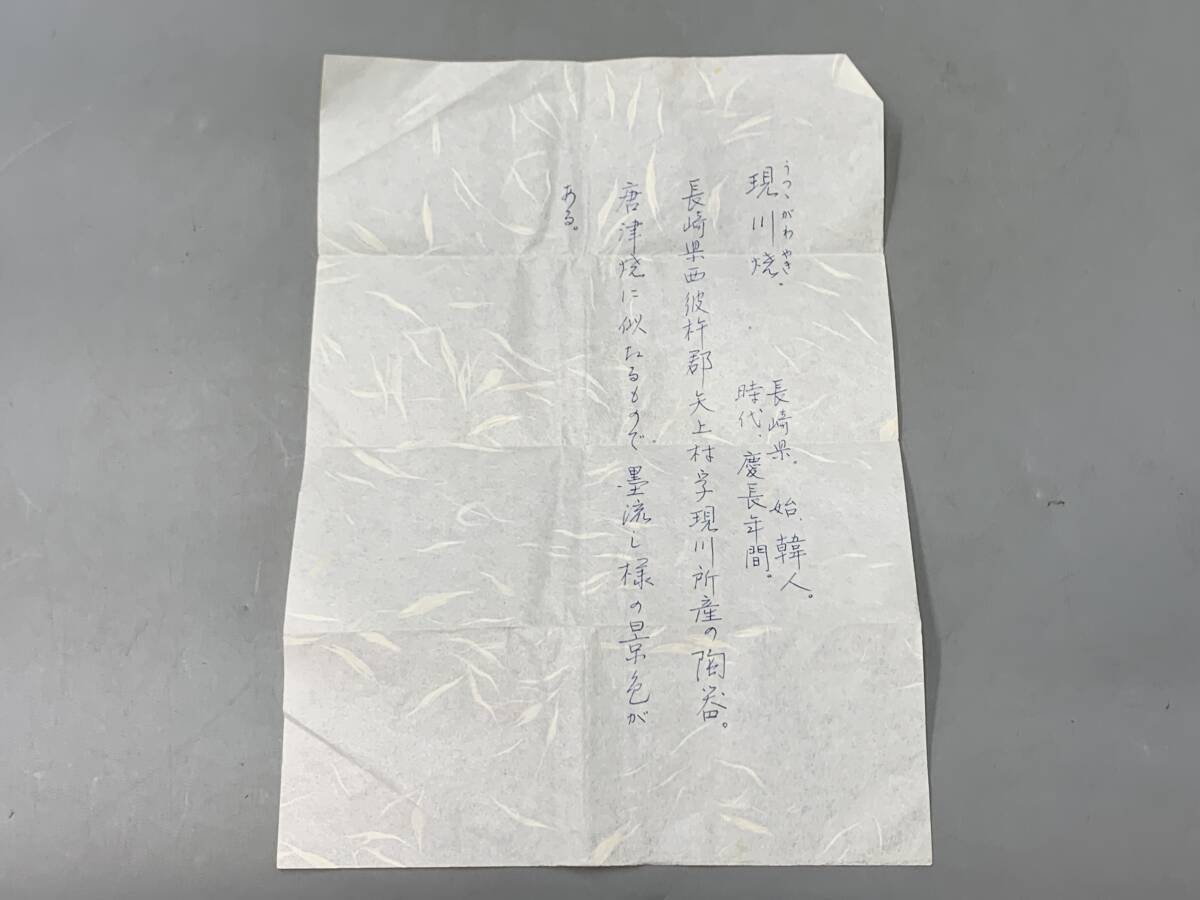 うつゝがわやき.
現川焼
長崎県. 始、韓人。
時代、慶長年間。
長崎県西彼杵郡矢上村字現川所産の陶器。
唐津焼に似たるもので、墨流し様の景色が
ある。